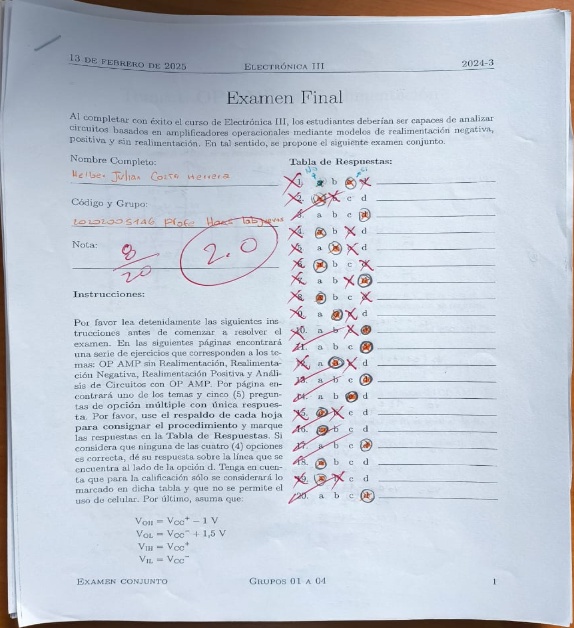 13 DE FEBRERO DE 2025 ELECTRÓNICA III 2024-3
Examen Final
Al completar con éxito el curso de Electrónica III, los estudiantes deberían ser capaces de analizar
circuitos basados en amplificadores operacionales mediante modelos de realimentación negativa,
positiva y sin realimentación. En tal sentido, se propone el siguiente examen conjunto.
Nombre Completo:
Julian
Código y Grupo:
Nota:
8
20
2.0
Instrucciones:
Por favor lea detenidamente las siguientes ins
trucciones antes de comenzar a resolver el
examen. En las siguientes páginas encontrará
una serie de ejercicios que corresponden a los te-
mas: OP AMP sin Realimentación, Realimenta-
ción Negativa, Realimentación Positiva y Análi-
sis de Circuitos con OP AMP. Por página en-
contrará uno de los temas y cinco (5) pregun-
tas de opción múltiple con única respues-
ta. Por favor, use el respaldo de cada hoja
para consignar el procedimiento y marque
las respuestas en la Tabla de Respuestas. Si
considera que ninguna de las cuatro (4) opciones
es correcta, dé su respuesta sobre la línea que se
encuentra al lado de la opción d. Tenga en cuen-
ta que para la calificación sólo se considerará lo
marcado en dicha tabla y que no se permite el
uso de celular. Por último, asuma que:
V_OH = V_CC⁺ − 1 V
V_OL = V_CC⁻ + 1,5 V
V_IH = V_CC⁺
V_IL = V_CC⁻
Tabla de Respuestas:
1. a b c d
2. a b c d
3. a b c d
4. a b c d
5. a b c d
6. a b c d
7. a b c d
8. a b c d
9. a b c d
10. a b c d
11. a b c d
12. a b c d
13. a b c d
14. a b c d
15. a b c d
16. a b c d
17. a b c d
18. a b c d
19. a b c d
20. a b c d
EXAMEN CONJUNTO GRUPOS 01 A 04 1